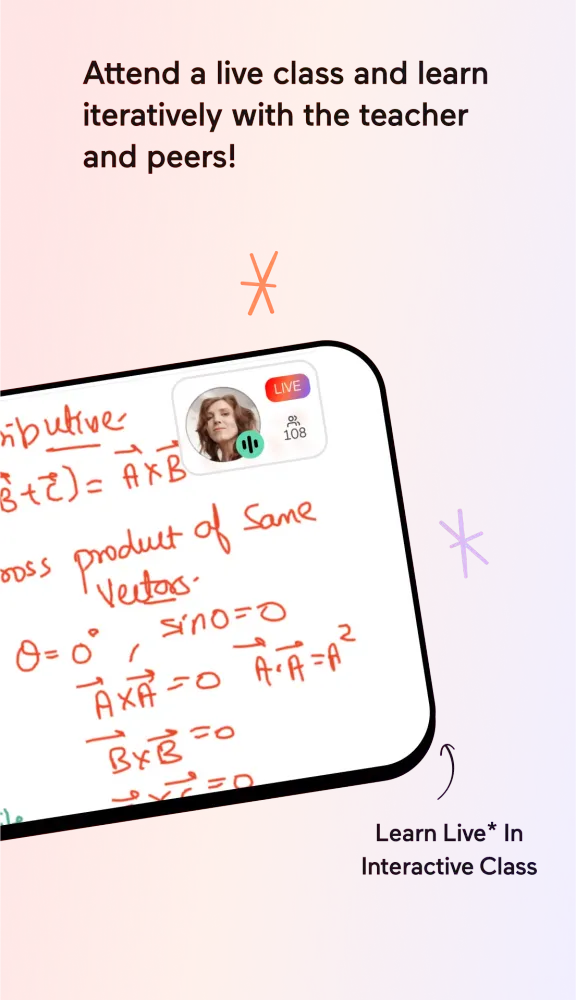 Attend a live class and learn
iteratively with the teacher
and peers!
LIVE
108
ributive
B⃗+C⃗)= A⃗×B⃗
ross product of Same
Vectors.
θ=0°, sin0=0
A⃗×A⃗=0 A⃗·A⃗=A²
B⃗×B⃗=0
=0
Learn Live* In
Interactive Class